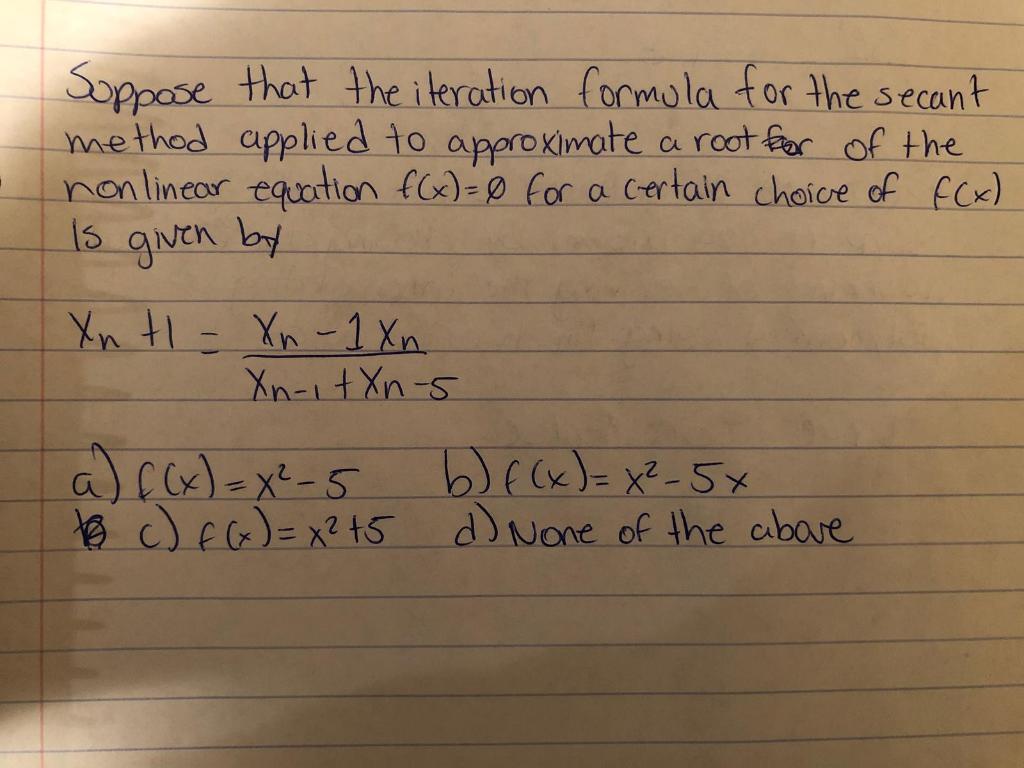 Suppose that the iteration formula for the secant
method applied to approximate a root for of the
nonlinear equation f(x)=0 for a certain choice of f(x)
Is given by
Xn +1 = Xn -1 Xn
Xn-1 + Xn -5
a) f(x) = x² - 5 b) f(x) = x² - 5x
c) f(x) = x² +5 d) None of the above